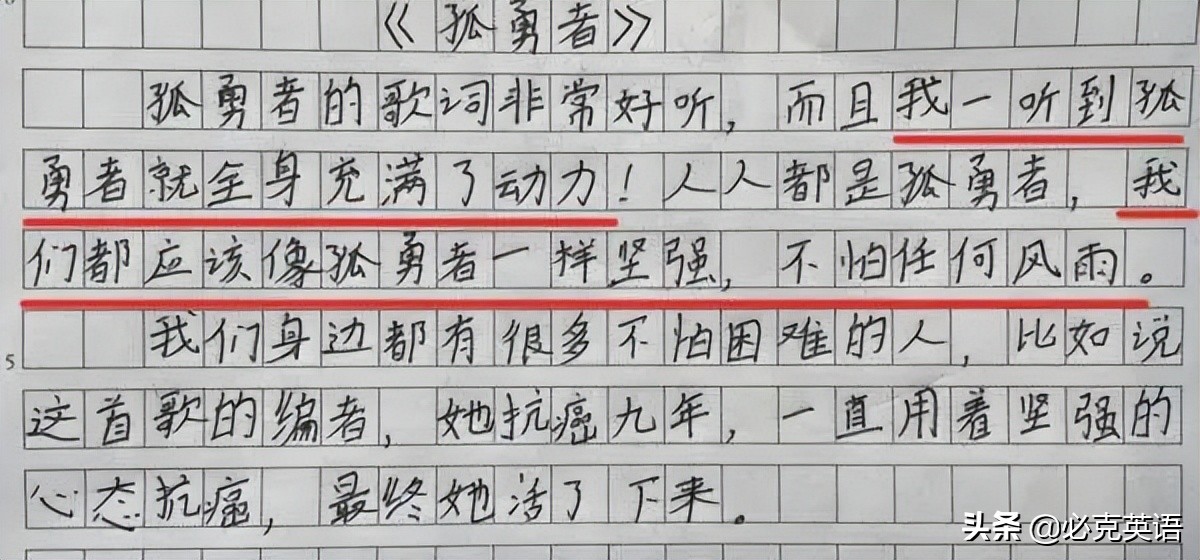 《孤勇者》
孤勇者的歌词非常好听，而且我一听到孤
勇者就全身充满了动力！人人都是孤勇者，我
们都应该像孤勇者一样坚强，不怕任何风雨。
我们身边都有很多不怕困难的人，比如说
5
这首歌的编者，她抗癌九年，一直用着坚强的
心态抗癌，最终她活了下来。
头条 @必克英语